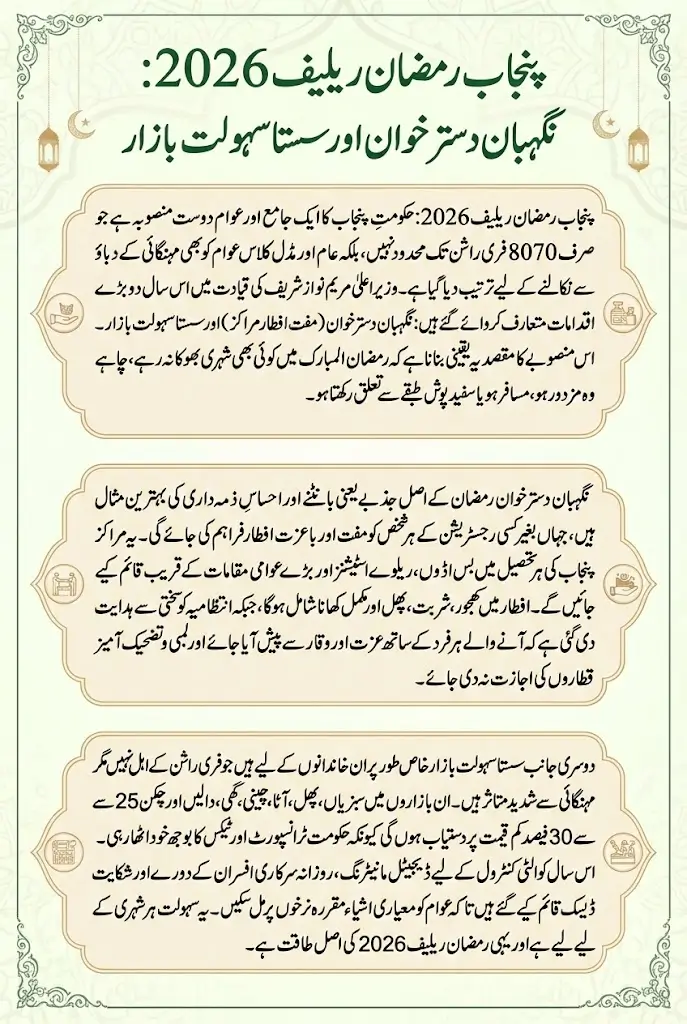 پنجاب رمضان ریلیف 2026:
نگہبان دسترخوان اور سستا سہولت بازار
پنجاب رمضان ریلیف 2026: حکومتِ پنجاب کا ایک جامع اور عوام دوست منصوبہ ہے جو
صرف 8070 فری راشن تک محدود نہیں، بلکہ عام اور مڈل کلاس عوام کو بھی مہنگائی کے دباؤ
سے نکالنے کے لیے ترتیب دیا گیا ہے۔ وزیراعلیٰ مریم نواز شریف کی قیادت میں اس سال دو بڑے
اقدامات متعارف کروائے گئے ہیں: نگہبان دسترخوان (مفت افطار مراکز) اور سستا سہولت بازار۔
اس منصوبے کا مقصد یہ یقینی بنانا ہے کہ رمضان المبارک میں کوئی بھی شہری بھوکا نہ رہے، چاہے
وہ مزدور ہو، مسافر ہو یا سفید پوش طبقے سے تعلق رکھتا ہو۔
نگہبان دسترخوان رمضان کے اصل جذبے یعنی بانٹنے اور احساسِ ذمہ داری کی بہترین مثال
ہیں، جہاں بغیر کسی رجسٹریشن کے ہر شخص کو مفت اور باعزت افطار فراہم کی جائے گی۔ یہ مراکز
پنجاب کی ہر تحصیل میں بس اڈوں، ریلوے اسٹیشنز اور بڑے عوامی مقامات کے قریب قائم کیے
جائیں گے۔ افطار میں کھجور، شربت، پھل اور مکمل کھانا شامل ہوگا، جبکہ انتظامیہ کو سختی سے ہدایت
دی گئی ہے کہ آنے والے ہر فرد کے ساتھ عزت اور وقار سے پیش آیا جائے اور لمبی و تضحیک آمیز
قطاروں کی اجازت نہ دی جائے۔
دوسری جانب سستا سہولت بازار خاص طور پر ان خاندانوں کے لیے ہیں جو فری راشن کے اہل نہیں مگر
مہنگائی سے شدید متاثر ہیں۔ ان بازاروں میں سبزیاں، پھل، آٹا، چینی، گھی، دالیں اور چکن 25 سے
سے 30 فیصد کم قیمت پر دستیاب ہوں گی کیونکہ حکومت ٹرانسپورٹ اور ٹیکس کا بوجھ خود اٹھا رہی۔
اس سال کوالٹی کنٹرول کے لیے ڈیجیٹل مانیٹرنگ، روزانہ سرکاری افسران کے دورے اور شکایت
ڈیسک قائم کیے گئے ہیں تاکہ عوام کو معیاری اشیاء مقررہ نرخوں پر مل سکیں۔ یہ سہولت ہر شہری کے
لیے لیے ہے اور یہی رمضان ریلیف 2026 کی اصل طاقت ہے۔